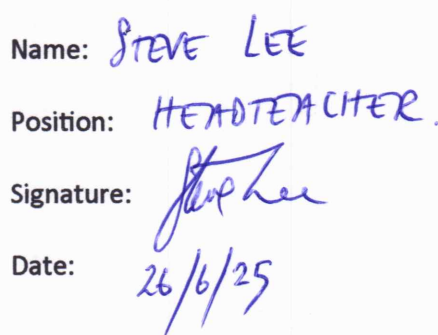 Name: STEVE LEE
Position: HEADTEACHER.
Signature: Steve Lee
Date: 26/6/25